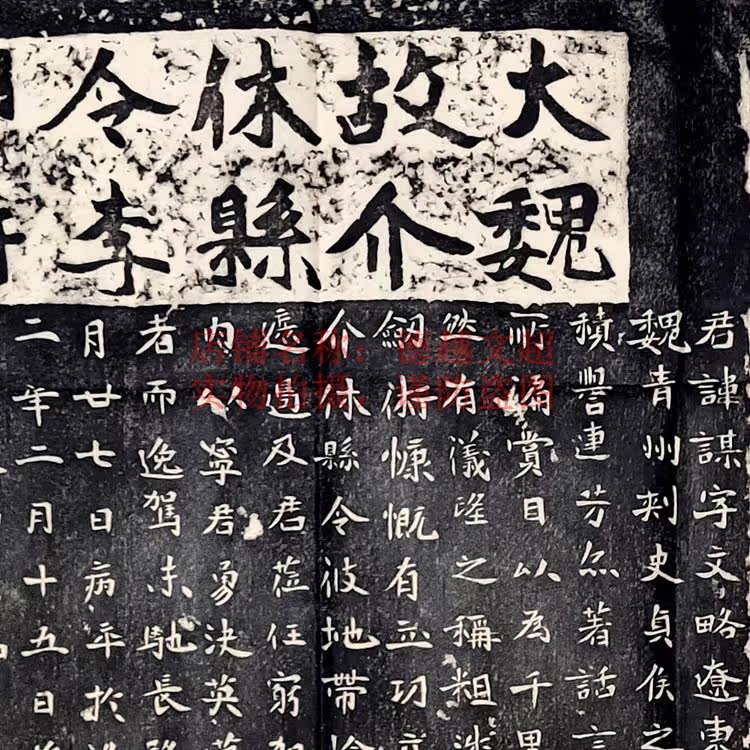 大魏
故介
休縣
令李
君諱謀字文略遼東
魏青州刺史貞侯之
積譽連芳亦著話言
偏賞目以為千里
有儀隆之稱粗涉
劒慷慨有立功立
介休縣令彼地帶險
邊及君莅任窮
寧君勇決英
者而逸駕未馳長路
月廿七日病卒於
二年二月十五日
店铺名称：德越文超
实物拍摄，谨防盗图